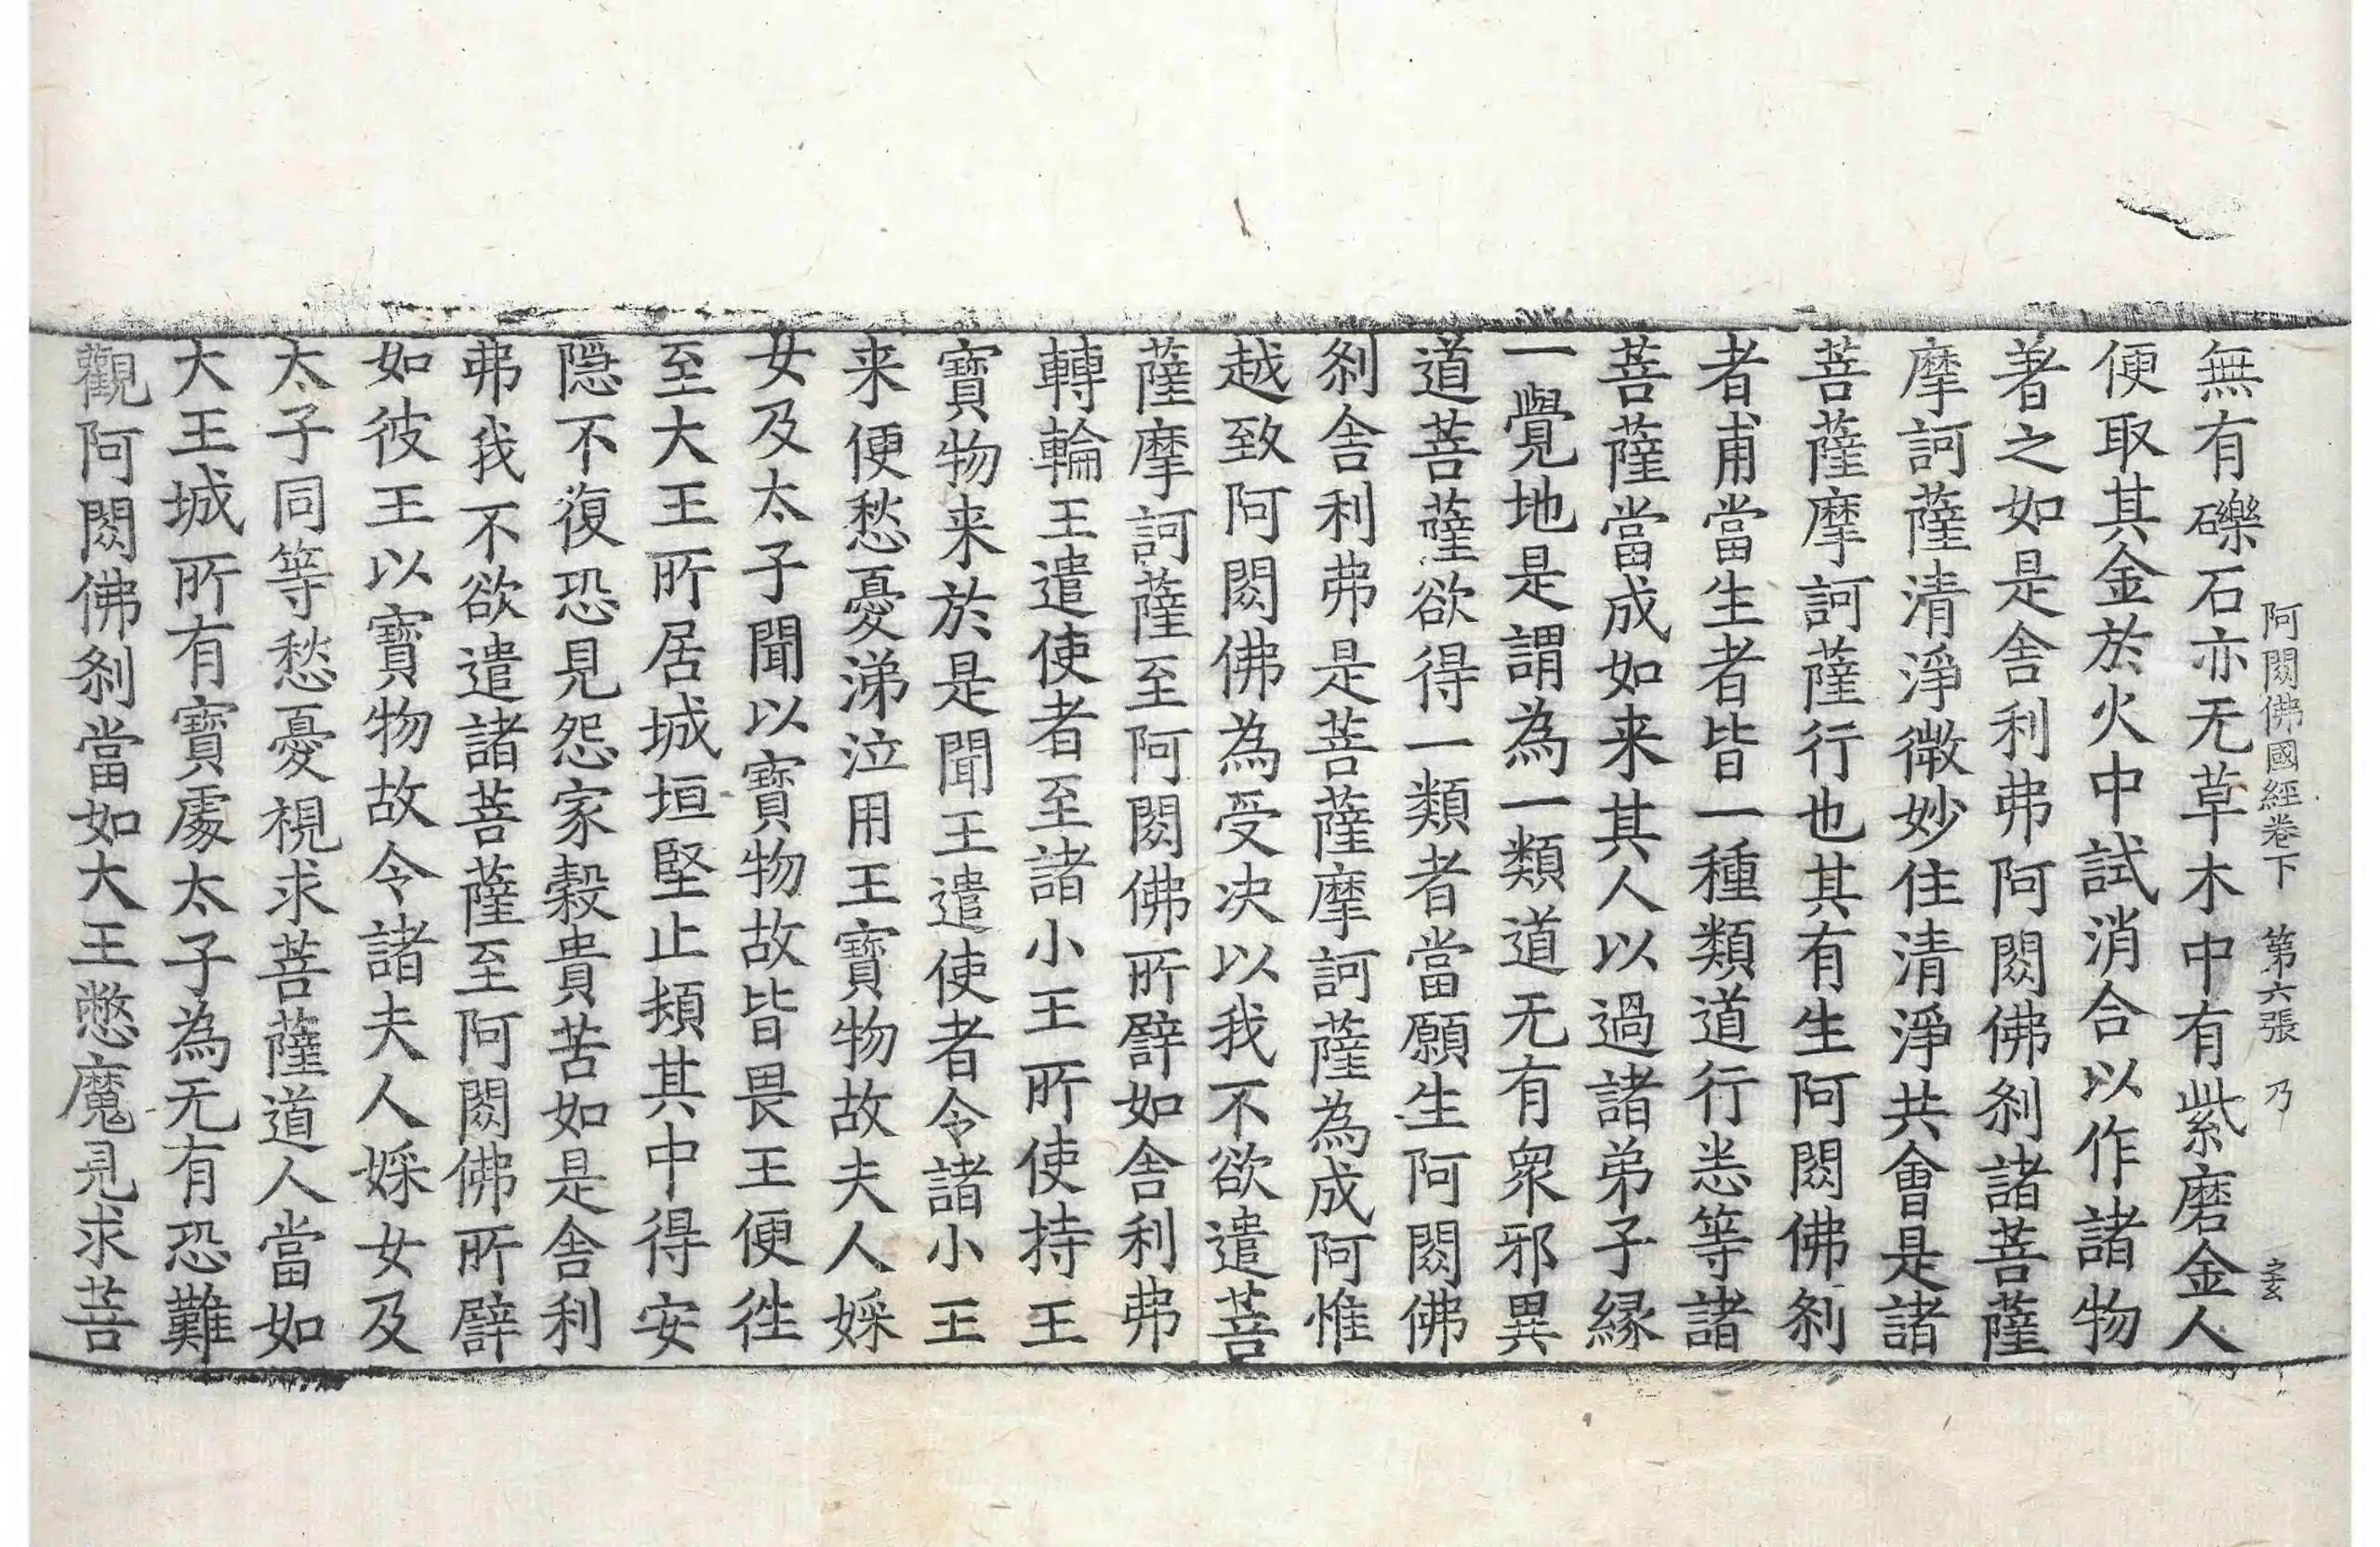 阿閦佛國經卷下　第六張　乃
無有礫石亦无草木中有紫磨金人
便取其金於火中試消合以作諸物
著之如是舎利弗阿閦佛刹諸菩薩
摩訶薩清淨微妙住清淨共會是諸
菩薩摩訶薩行也其有生阿閦佛刹
者甫當生者皆一種類道行悉等諸
菩薩當成如来其人以過諸弟子縁
一覺地是謂為一類道无有衆邪異
道菩薩欲得一類者當願生阿閦佛
刹舎利弗是菩薩摩訶薩為成阿惟
越致阿閦佛為受决以我不欲遣菩
薩摩訶薩至阿閦佛所譬如舎利弗
轉輪王遣使者至諸小王所使持王
寶物来於是聞王遣使者令諸小王
来便愁憂涕泣用王寶物故夫人婇
女及太子聞以寶物故皆畏王便徃
至大王所居城垣堅止頬其中得安
隠不復恐見怨家穀貴苦如是舎利
弗我不欲遣諸菩薩至阿閦佛所譬
如彼王以寶物故令諸夫人婇女及
太子同等愁憂視求菩薩道人當如
大王城所有寶處太子為无有恐難
觀阿閦佛刹當如大王憋魔見求菩